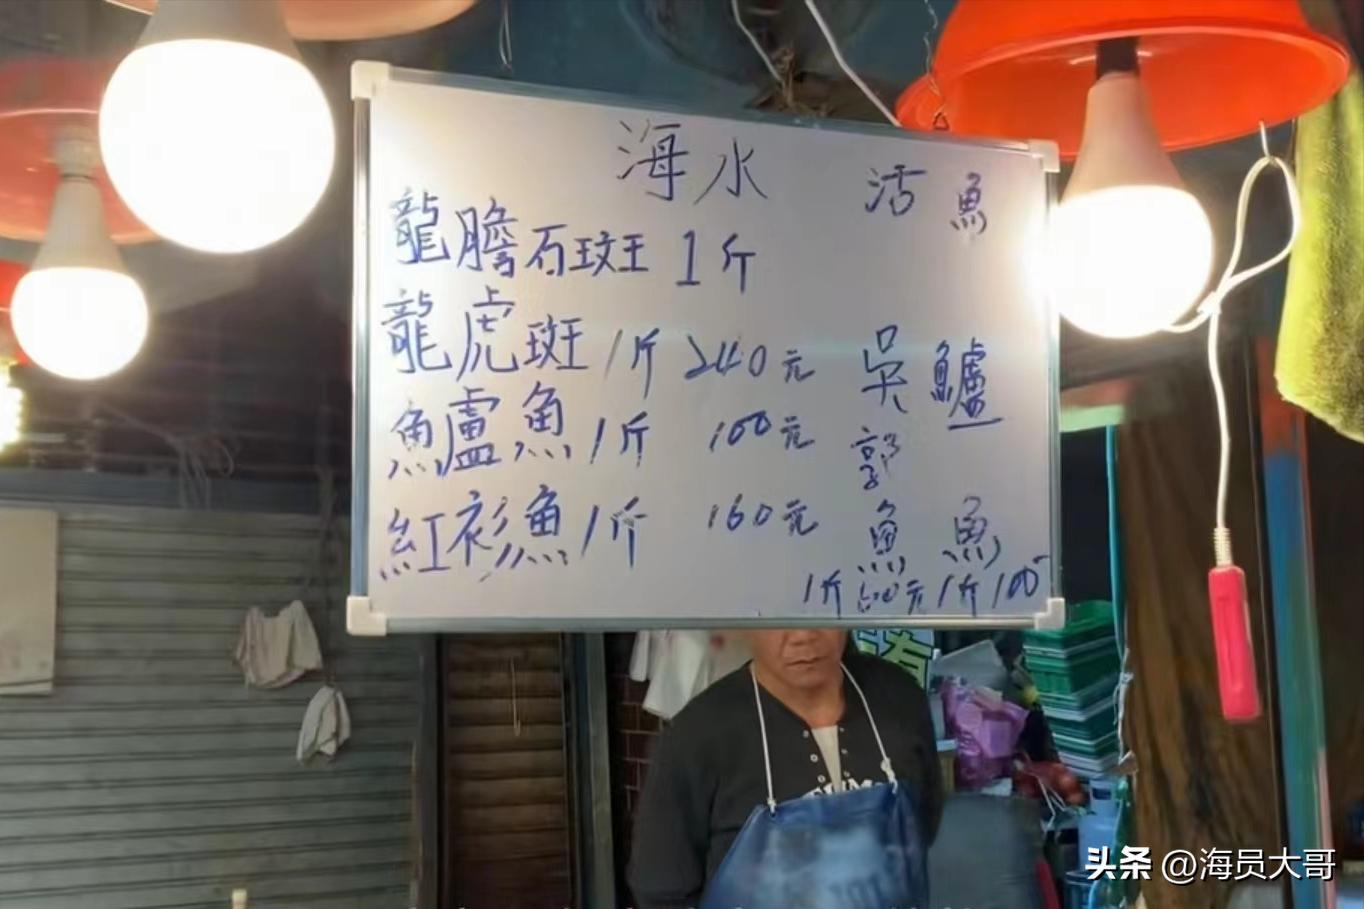 海水 活魚
龍膽石斑王 1斤
龍虎斑 1斤 240元
鱸魚 1斤 100元
紅衫魚 1斤 160元
吳郭魚 1斤
鱸魚 1斤 100
头条 @海员大哥